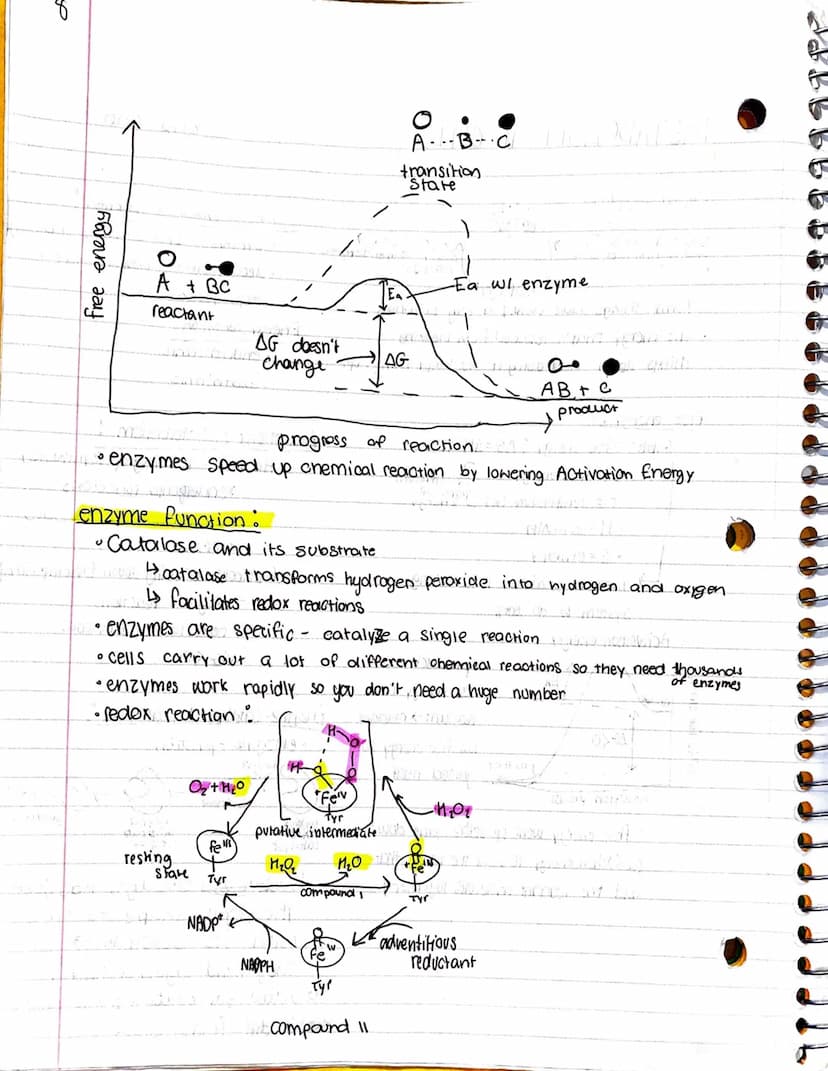 8
A...B...C
transition
state
free energy
A + BC
reactant
Ea
Ea w/ enzyme
ΔG doesn't
change
ΔG
AB + C
product
progress of reaction
• enzymes speed up chemical reaction by lowering Activation Energy
enzyme function:
• Catalase and its substrate
↳ catalase transforms hydrogen peroxide into hydrogen and oxigen
↳ facilitates redox reactions
• enzymes are specific - catalyze a single reaction
• cells carry out a lot of different chemical reactions so they need thousands
of enzymes
• enzymes work rapidly so you don't need a huge number
• redox reaction:
H O
H O O
+Fe IV
Tyr
putative intermediate
O₂ + H₂O
H₂O₂
resting
state
Fe III
Tyr
H₂O₂ H₂O
compound 1
O
+Fe IV
Tyr
NADP+
NADPH
O
Fe IV
Tyr
adventitious
reductant
compound 11